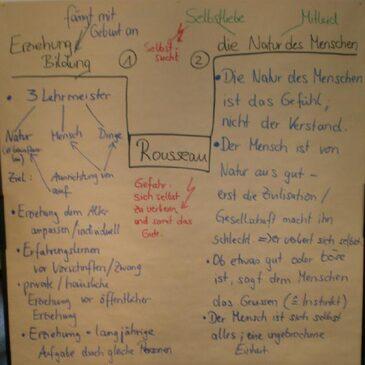 fängt mit
Geburt an
Erziehung
Bildung
①
3 Lehrmeister
Natur
Mensch
Dinge
Ziel: Ausrichtung von
auf
• Erziehung dem Alter
anpassen / individuell
• Erfahrungslernen
vor Vorschriften / Zwang
• private / häusliche
Erziehung vor öffentlicher
Erziehung
• Erziehung = langjährige
Aufgabe durch gleiche Personen
Selbst
sucht
Rousseau
Gefahr:
sich selbst
zu verlieren
und somit das
Gute.
Selbstliebe
Mitleid
②
die Natur des Menschen
• Die Natur des Menschen
ist das Gefühl,
nicht der Verstand.
• Der Mensch ist von
Natur aus gut –
erst die Zivilisation /
Gesellschaft macht ihn
schlecht. => sich selbst.
• Ob etwas gut oder böse
ist, sagt dem Menschen
das Gewissen (≙ Instinkt)
• Der Mensch ist sich selbst
alles; eine ungebrochene
Einheit